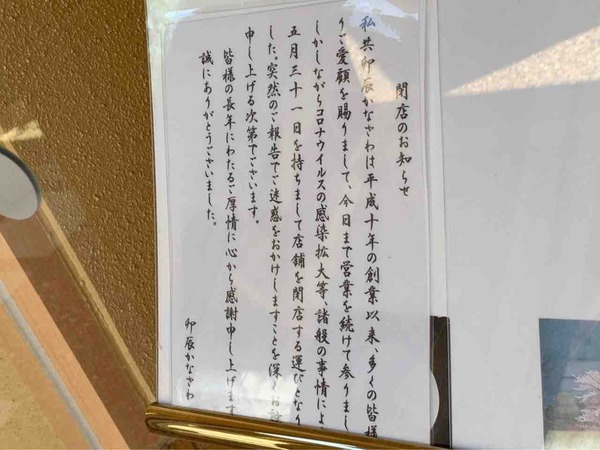 閉店のお知らせ
私共卯辰かなざわは平成十年の創業以来、多くの皆様
りご愛顧を賜りまして、今日まで営業を続けて参りまし
しかしながらコロナウイルスの感染拡大等、諸般の事情によ
五月三十一日を持ちまして店舗を閉店する運びとなり
した。突然のご報告でご迷惑をおかけしますことを深くお
申し上げる次第でございます。
皆様の長年にわたるご厚情に心から感謝申し上げます
誠にありがとうございました。
卯辰かなざわ